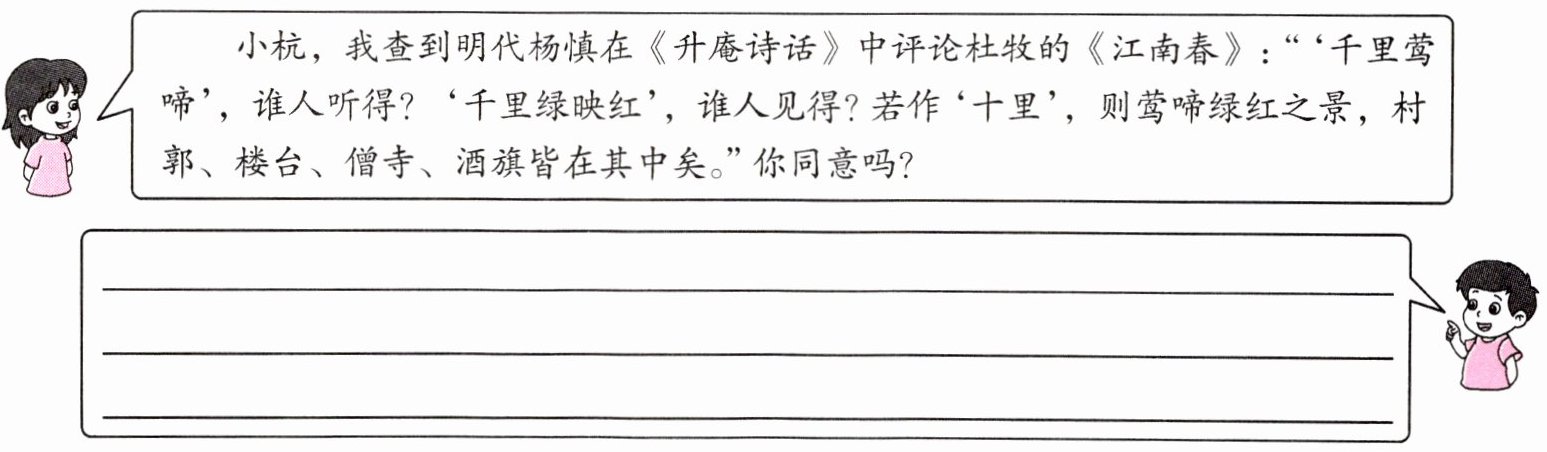 小杭，我查到明代杨慎在《升庵诗话》中评论杜牧的《江南春》：“‘千里莺
啼’，谁人听得？‘千里绿映红’，谁人见得？若作‘十里’，则莺啼绿红之景，村
郭、楼台、僧寺、酒旗皆在其中矣。”你同意吗？